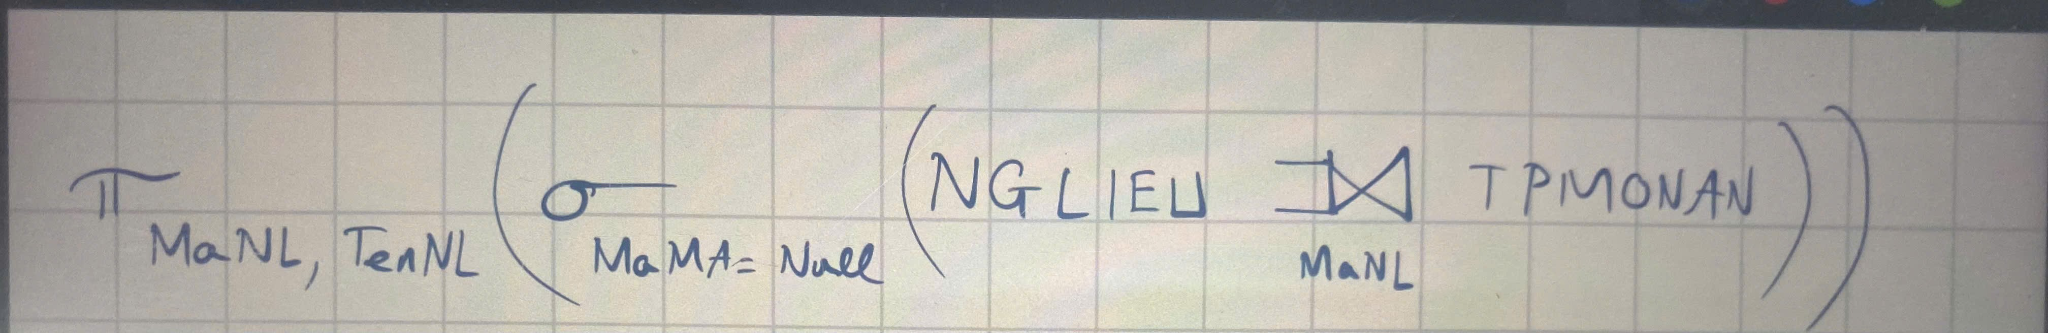 π MaNL, TenNL (σ MaMA= Null (NGLIEU ⟕ MaNL TPMONAN))